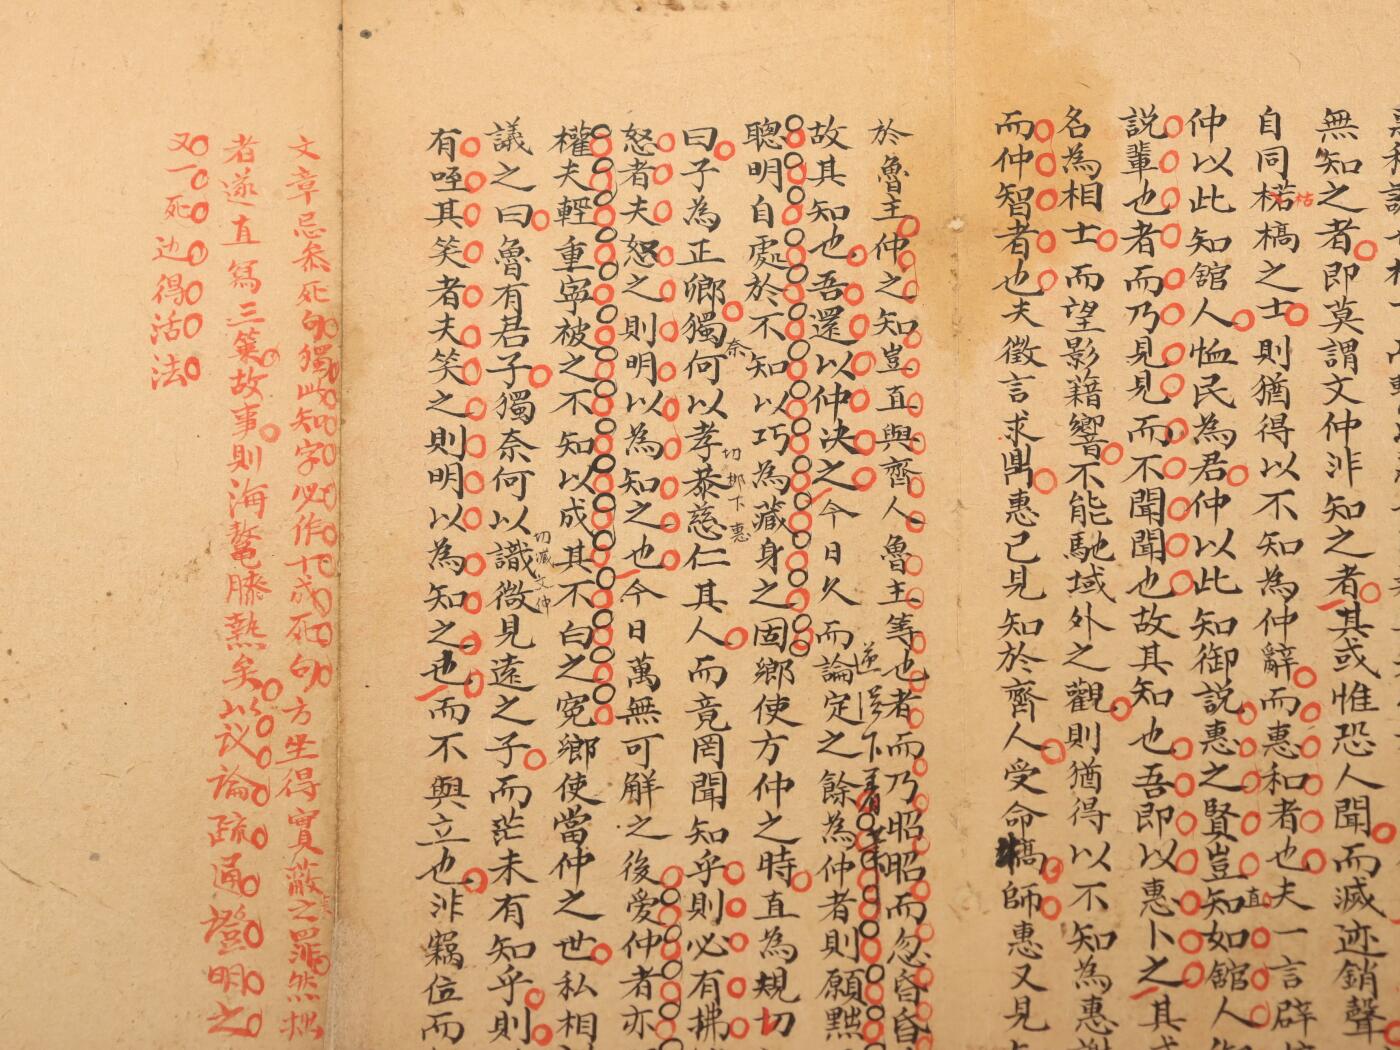 無知之者即莫謂文仲非知之者其或惟恐人聞而滅迹銷聲
自同楛槁之士則猶得以不知為仲辭而惠和者也夫一言辟
枯
仲以此知舘人恤民為君仲以此知御説惠之賢豈知如舘人
直
説輩也者而乃見見而不聞聞也故其知也吾即以惠卜之其
名為相士而望影藉響不能馳域外之觀則猶得以不知為惠
而仲智者也夫徵言求鼎惠已見知於齊人受命犒師惠又見
於魯主仲之知豈直與齊人魯主等也者而乃昭昭而忽昏昏
故其知也吾還以仲决之今日久而論定之餘為仲者則願黙
聰明自處於不知以巧為藏身之固鄉使方仲之時直為規切
曰子為正鄉獨何以孝恭慈仁其人而竟罔聞知乎則必有拂
奈
切柳下惠
怒者夫怒之則明以為知之也今日萬無可解之後愛仲者亦
權夫輕重寧被之不知以成其不白之寃鄉使當仲之世私相
議之曰魯有君子獨奈何以識微見遠之子而茫未有知乎則
切滅文仲
有咥其笑者夫笑之則明以為知之也而不與立也非竊位而
文章忌叅死句獨此知字必作十成死句方坐得實蔽之罪然拙
者遂直寫三篥故事則海鰲膝熱矣以议論疏通證明之
又一死边得活法